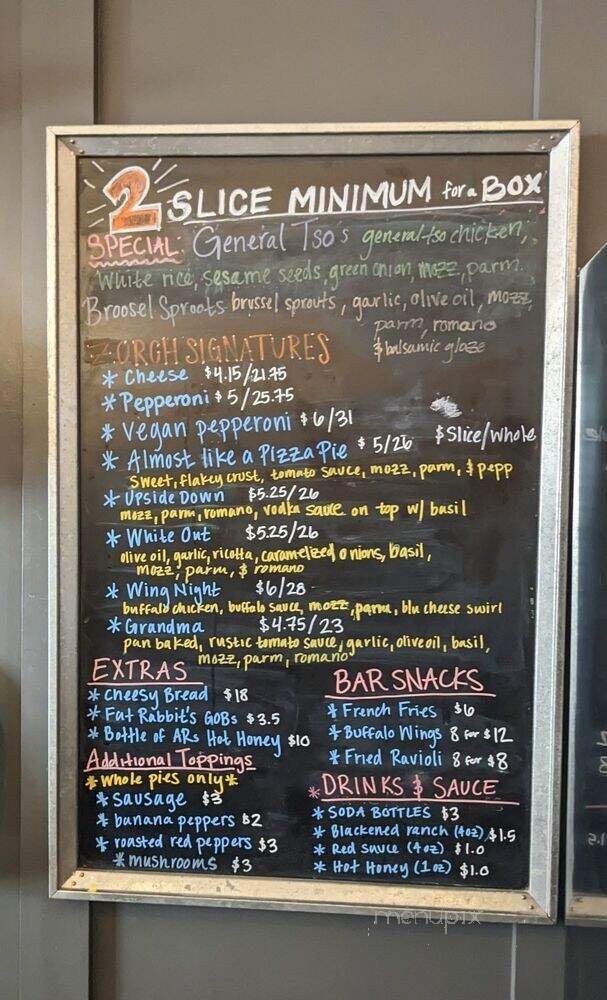 2 SLICE MINIMUM for a BOX
SPECIAL: General Tso's general tso chicken,
White rice, sesame seeds, green onion, mozz, parm.
Broosel Sproots brussel sprouts, garlic, olive oil, mozz,
parm, romano
& balsamic glaze
ZORGH SIGNATURES
* Cheese $4.15/21.75
* Pepperoni $5/25.75
* Vegan pepperoni $6/31
$Slice/Whole
* Almost like a Pizza Pie $5/26
Sweet, flakey crust, tomato sauce, mozz, parm, & pepp
* Upside Down $5.25/26
mozz, parm, romano, vodka sauce on top w/ basil
* White Out $5.25/26
olive oil, garlic, ricotta, caramelized onions, basil,
mozz, parm, & romano
* Wing Night $6/28
buffalo chicken, buffalo sauce, mozz, parm, blu cheese swirl
* Grandma $4.75/23
pan baked, rustic tomato sauce, garlic, olive oil, basil,
mozz, parm, romano
EXTRAS
* Cheesy Bread $18
* Fat Rabbit's GOBs $3.5
* Bottle of ARs Hot Honey $10
Additional Toppings
* Whole pies only *
* sausage $3
* banana peppers $2
* roasted red peppers $3
* mushrooms $3
BAR SNACKS
* French Fries $6
* Buffalo Wings 8 for $12
* Fried Ravioli 8 for $8
* DRINKS & SAUCE
* SODA BOTTLES $3
* Blackened ranch (4oz) $1.5
* Red sauce (4oz) $1.0
* Hot Honey (1oz) $1.0
menupix